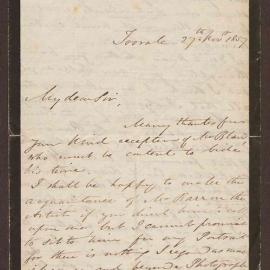 Toorale
27th Novr 1857
My dear Sir,
Many thanks for
your kind reception of Mr Blair
who must be content to bide
his time.
I shall be happy to make the
acquaintance of Mr
Artist if you direct him to call
upon me but I cannot promise
to sit to him for my Portrait
for there is nothing I regard as more
and beyond Photograph